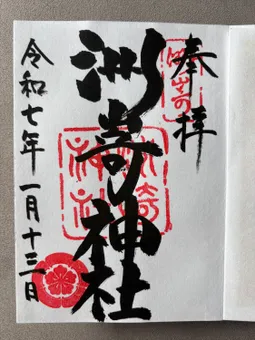 奉拝
洲嵜神社
令和七年一月十三日
洲崎
神社